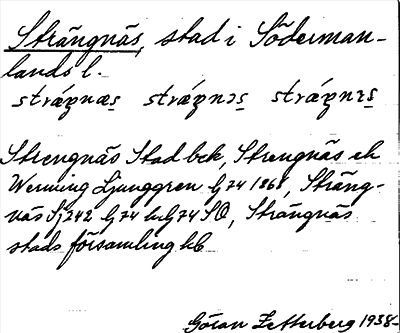 Strängnäs, stad i Söderman-
lands l.
strǽŋnæs strǽŋnɔs strǽŋnɪs
Strengnäs Stad bek, Strengnäs ek
Wenning Ljunggren G 74 1868, Sträng-
näs Sj 242 G 74 h G 74 SO, Strängnäs
stads församling kb
Göran Zetterberg 1938-